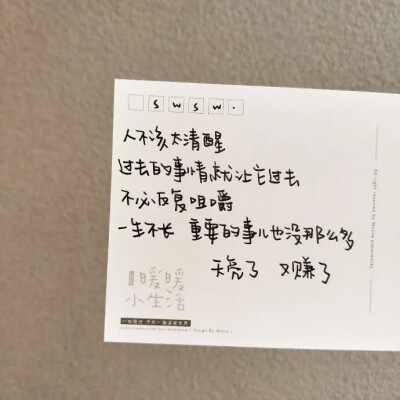 swsw.
人不该太清醒
过去的事情就让它过去
不必反复咀嚼
一生不长 重要的事儿也没那么多
天亮了 又赚了
暖暖
小生活
All right reserved by Moore paperworks
Design By Moore